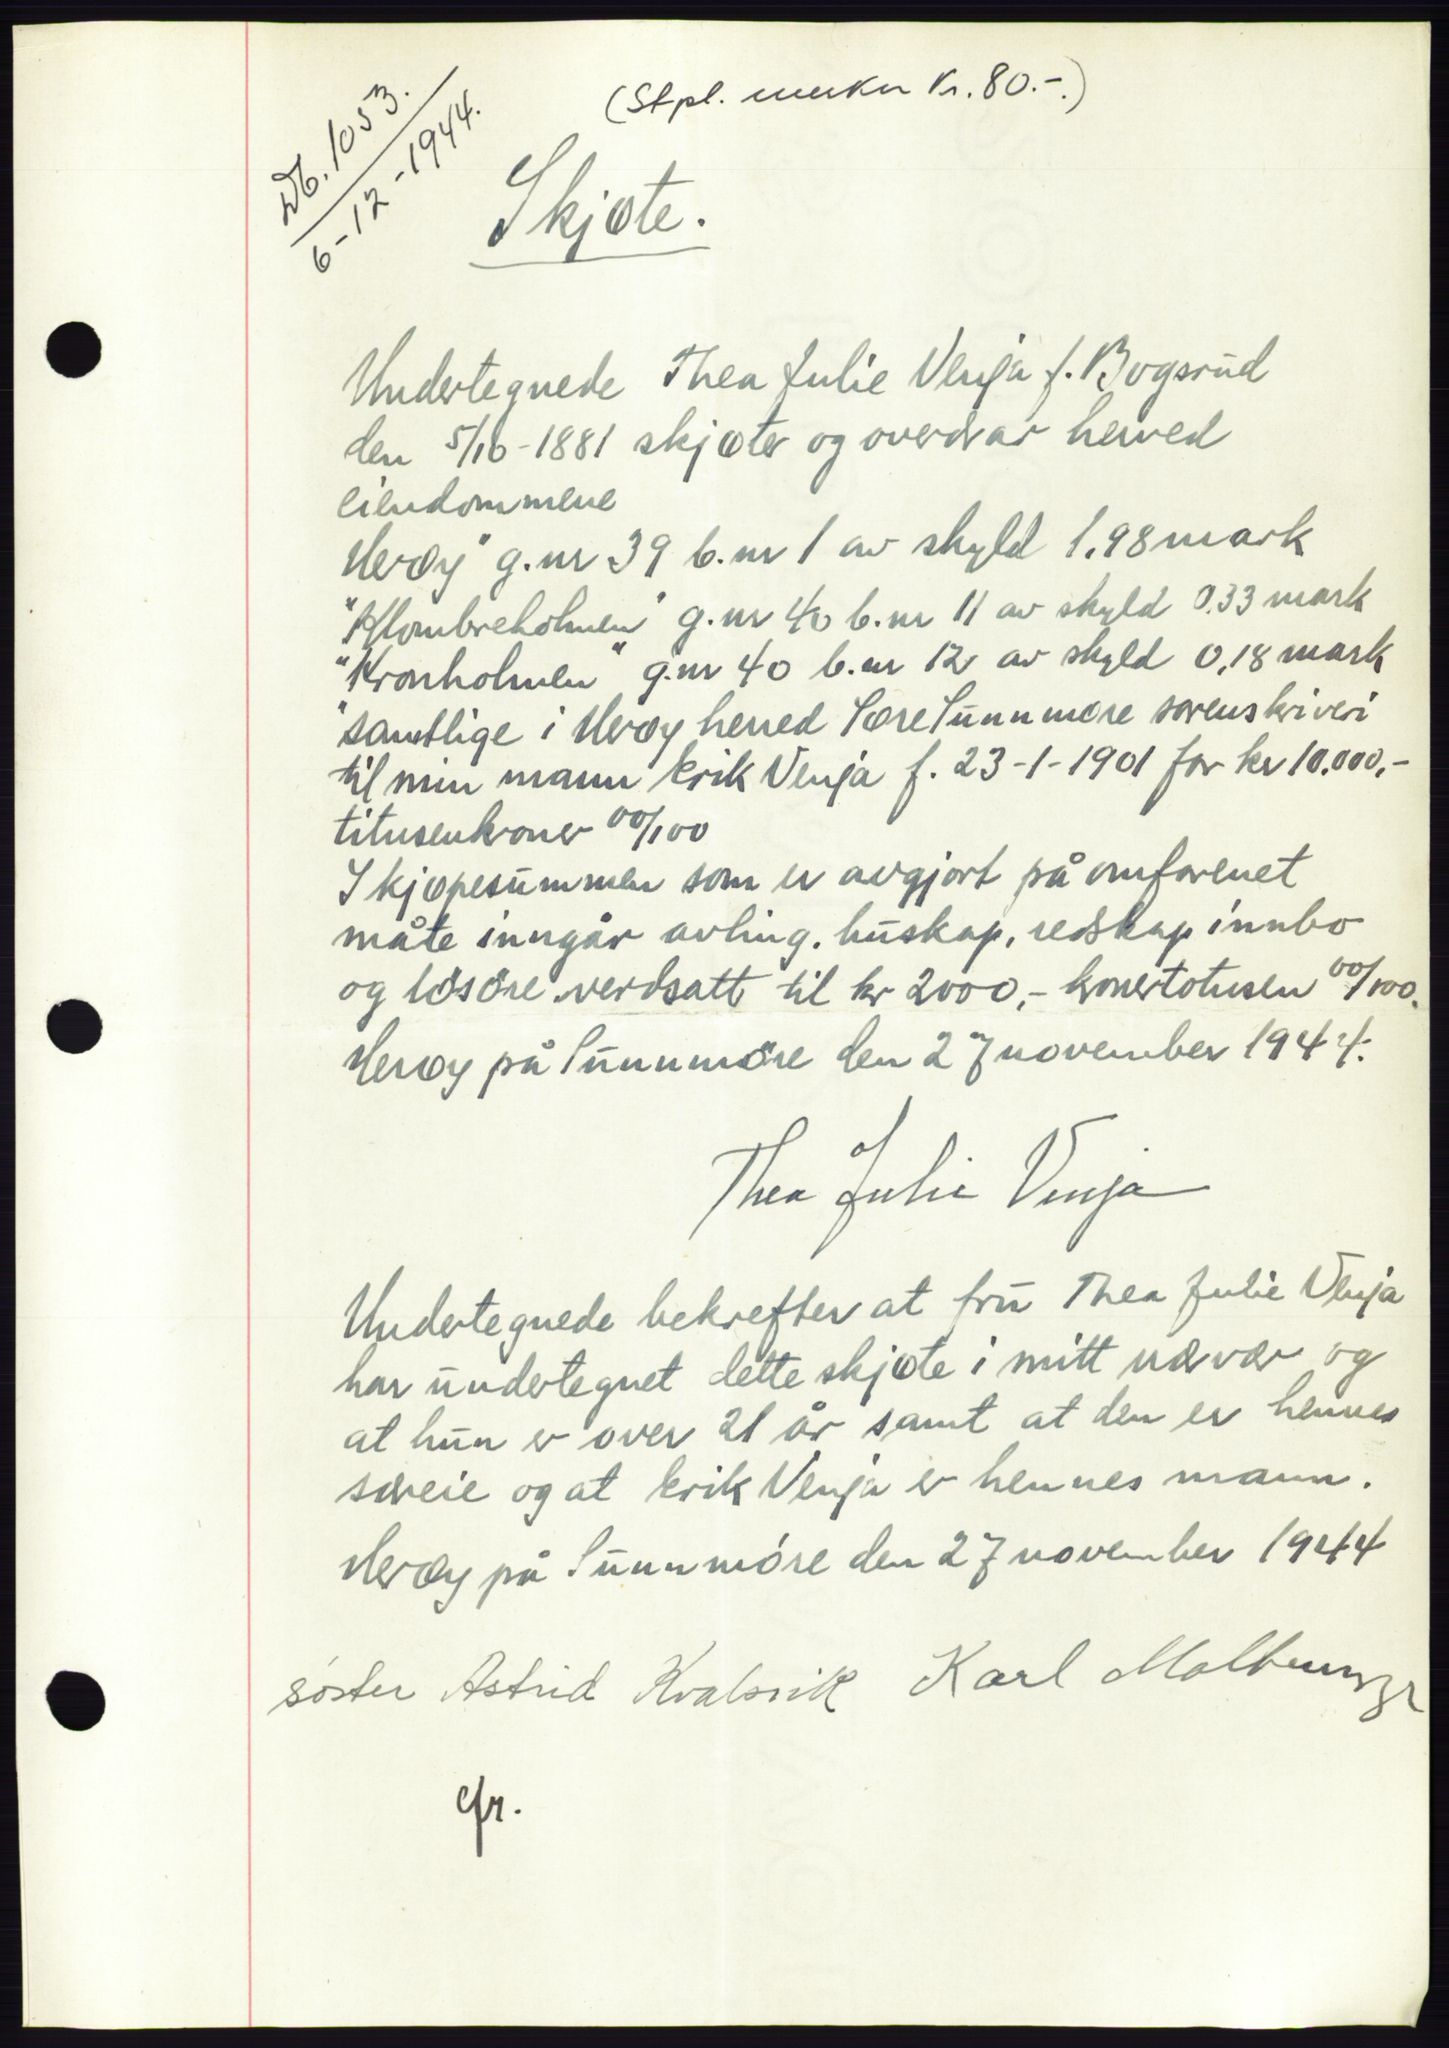 (Stpl. merker Kr. 80.-.)
Db. 1053.
6-12-1944.
Skjøte.
Undertegnede Thea Julie Venja f. Bogsrud
den 5/10-1881 skjøter og overdrar herved
eiendommene
"Herøy" g.nr 39 b.nr 1 av skyld 1,98 mark
"Klombreholmen" g.nr 40 b.nr 11 av skyld 0.33 mark
"Kronholmen" g.nr 40 b.nr 12 av skyld 0,18 mark
samtlige i Herøy herred Søre Sunnmøre sorenskriveri
til min mann Erik Venja f. 23-1-1901 for kr 10.000,-
titusenkroner 00/100
I kjøpesummen som er avgjort på omforenet
måte inngår avling, huskap, redskap innbo
og løsøre verdsatt til kr 2000,- kronertotusen 00/100.
Herøy på Sunnmøre den 27 november 1944.
Thea Julie Venja
Undertegnede bekrefter at fru Thea Julie Venja
har undertegnet dette skjøte i mitt nærvær og
at hun er over 21 år samt at den er hennes
særeie og at Erik Venja er hennes mann.
Herøy på Sunnmøre den 27 november 1944
søster Astrid Kvalsvik Karl